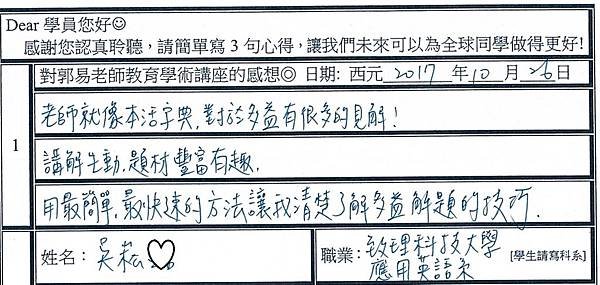 Dear 學員您好☺
感謝您認真聆聽，請簡單寫 3 句心得，讓我們未來可以為全球同學做得更好!
對郭易老師教育學術講座的感想◎ 日期: 西元 2017 年 10 月 26 日
1
老師就像本活字典,對於多益有很多的見解!
講解生動,題材豐富有趣.
用最簡單,最快速的方法讓我清楚了解多益解題的技巧.
姓名： 吳崧♡
職業： 致理科技大學
應用英語系 [學生請寫科系]